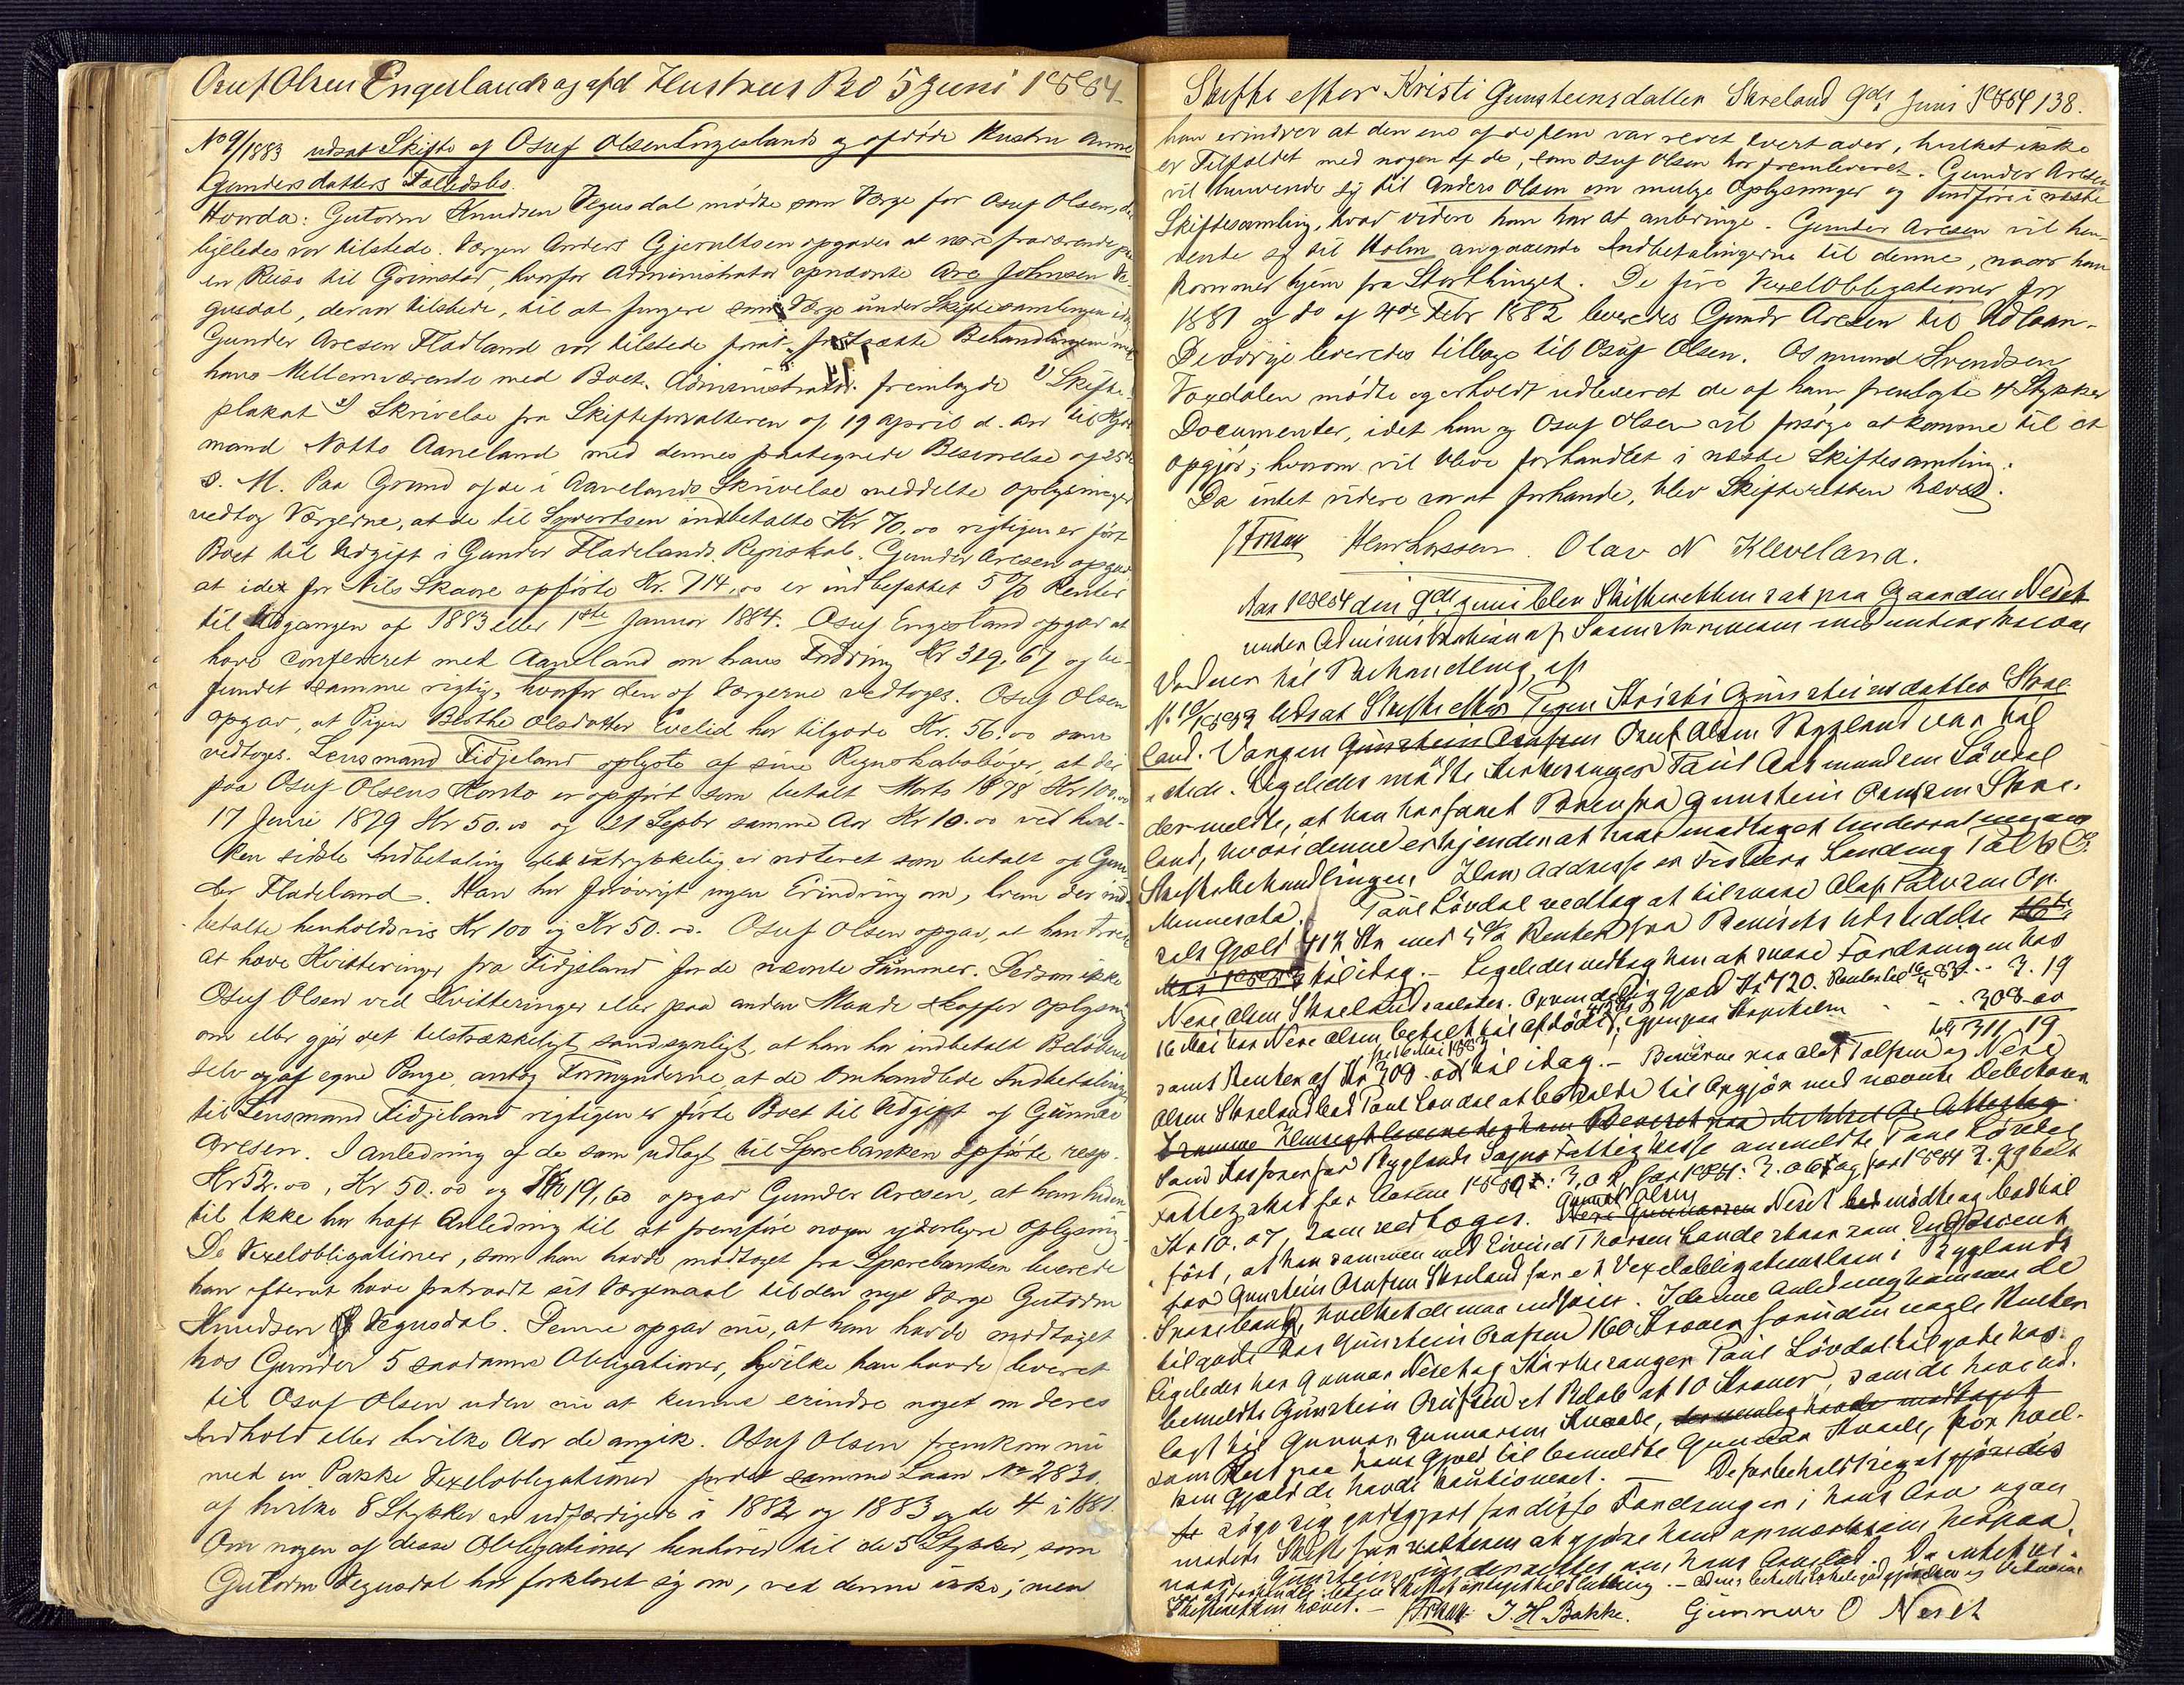 Osuf Olsen Engeslands og afd Hustrus Bo 5 Juni 1884
No 9/1883 udsat Skifte af Osuf Olsen Engeslands og afdøde Hustru Anne
Gundersdatters Fællesbo.
Hvorda: Gutorm Knudsen Vegusdal mødte som Værge for Osuf Olsen, der
ligeledes var tilstede. Værgen Anders Gjerultsen opgaves at være fraværende paa
en Reise til Grimstad, hvorfor Administrator opnævnte Are Johnsen Ve-
gusdal, der var tilstede, til at fungere som Værge under Skiftesamlingen idag
Gunder Aresen Fladland var tilstede Behandlingen
hans Mellemværende med Boet. Administrator fremlagde 1) Skifte-
plakat 2) Skrivelse fra Skifteforvalteren af 19 April d. Aar til
mand Notto Aaneland med dennes paategnede Besvarelse af 25de
s. M. Paa Grund af de i Aanelands Skrivelse meddelte Oplysninger
vedtog Værgerne, at de til Syvertsen indbetalte Kr 70.00 rigtigen er ført
Boet til Udgift i Gunder Fladelands Regnskab. Gunder Aresen opgav
at i det for Nils Skaare opførte Kr. 714.00 er indbefattet 5 % Renter
til Udgangen af 1883 eller 1ste Januar 1884. Osuf Engesland opgav at
have confereret med Aaneland om hans Fordring Kr 319.67 og be-
fundet samme rigtig, hvorfor den af Værgerne vedtoges. Osuf Olsen
opgav, at Pigen Berthe Olsdatter Evelid har tilgode Kr. 56.00 som
vedtoges. Lensmand Fidjeland oplyste af sine Regnskabsbøger, at der
paa Osuf Olsens Konto er opført som betalt Marts 1878 Kr 100.00
17 Juni 1879 Kr 50.00 og 21 Septbr samme Aar Kr 10.00 ved hvil-
ken sidste Indbetaling det udtrykkelig er noteret som betalt af Gun
der Fladeland. Han har forøvrigt ingen Erindring om, hvem der ind-
betalte henholdsvis Kr 100 og Kr 50.00. Osuf Olsen opgav, at han troede
at have Kvitteringer fra Fidjeland for de nævnte Summer. Dersom ikke
Osuf Olsen ved Kvitteringer eller paa anden Maade skaffer Oplysning
om eller gjør det tilstrækkeligt sandsynligt, at han har indbetalt Beløbene
selv og af egne Penge, antog Formynderne, at de omhandlede Indbetalinger
til Lensmand Fidjeland rigtigen er førte Boet til Udgift af Gunder
Aresen. I Anledning af de som udlagt til Sparebanken opførte resp.
Kr 52.00, Kr 50.00 og Kr 19.60 opgav Gunder Aresen, at han hidin-
til ikke har haft Anledning til at fremføre nogen yderligere Oplysning.
De Vexelobligationer, som han havde modtaget fra Sparebanken leverede
han efterat have fratraadt sit Værgemaal til den nye Værge Gutorm
Knudsen Vegusdal. Denne opgav nu, at han havde modtaget
hos Gunder 5 saadanne Obligationer, hvilke han havde leveret
til Osuf Olsen uden nu at kunne erindre noget om deres
Indhold eller hvilke Aar de angik. Osuf Olsen fremkom nu
med en Pakke Vexelobligationer for det samme Laan No 2830,
af hvilke 8 Stykker er udfærdigede i 1882 og 1883 og de 4 i 1881.
Om nogen af disse Obligationer henhører til de 5 Stykker, som
Gutorm Vegusdal har forklaret sig om, ved denne ikke; men
Skifte efter Kristi Gunsteinsdatter Skreland 9de Juni 1884 138.
han erindrer at den ene af de fem var revet tvert over, hvilket ikke
er Tilfældet med nogen af de, som Osuf Olsen har fremleveret. Gunder Aresen
vil henvende sig til Anders Olsen om mulige Oplysninger og indføre i næste
Skiftesamling, hvad videre han har at anbringe. Gunder Aresen vil hen-
vende sig til Holm angaaende Indbetalingerne til denne, naar han
kommer hjem fra Storthinget. De fire Vexelobligationer for
1881 og do af 4de Febr 1882 leveredes Gundr Aresen til Udlaan.
De øvrige leveredes tilbage til Osuf Olsen. Osmund Svendsen
Vaxdalen mødte og erholdt udleveret de af ham fremlagte 4 Stykker
Documenter, idet han og Osuf Olsen vil forsøge at komme til et
Opgjør, hvorom vil blive forhandlet i næste Skiftesamling.
Da intet videre var at forhandle, blev Skifteretten hævet.
Henr Lassen. Olav N Kleveland.
Aar 1884 den 9de Juni blev Skifteretten sat paa Gaarden Neset
under Administration af Sorenskriveren med undertegnede
Vidner til Behandling af
No 10/1883 Udsat Skifte efter Pigen Kristi Gunsteinsdatter Skre-
land. Værgen Gunstein Osufsen Osuf Olsen Rygland var til
stede. Ligeledes mødte Kirkesanger Paul Aasmundsen Løvdal
der meldte, at han har faaet Brev fra Gunstein Osufsen Skre-
land, hvori denne erkjender at have modtaget Underretning om
Skiftebehandlingen. Hans Addresse er Fishers Landing Polk Co.
Minnesota. Paul Løvdal vedtog at tilsvare Olaf
sels Gjæld 412 Kr med 5 % Renter fra Bevisets Udstedelse
til idag. – Ligeledes vedtog han at svare Fordringen hos
Nere Olsen Skreland saaledes: Oprindelig Gjæld Kr 720. Renter til 3.19
16 Mai har Nere Olsen betalt til afdøde, 308.00
311.19
samt Renter af Kr 308.00 til idag. – Beviserne paa Olaf Talfsen og Nere
Olsen Skreland bad Paul Løvdal at beholde til Opgjør med nævnte Debitorer
land Kasserer for Ryglands Sogns Fattigkasse anmeldte Paul Løvdal
Fattigskat for
Kr 10.07, som vedtoges. Gunnar Olsen Neset mødte og bad til
ført, at han sammen med Eivind Thorsen Lande staar som Endossent
for Gunstein Osufsen Skreland for et Vexelobligationslaan i Ryglands
Sparebank, hvilket de maa indfri. I denne Anledning kommer de
tilgode hos Gunstein Osufsen 160 Kroner foruden nogle Renter
ligeledes har Gunnar Neset og Kirkesanger Paul Løvdal tilgode hos
bemeldte Gunstein Osufsen et Beløb af 10 Kroner, som de have ud-
lagt til Gunnar Gunnarsen Kvaale,
som Rest paa hans Gjæld til bemeldte Gunnar Kvaale, for hvil-
ken Gjæld de havde kautioneret. – De forbeholdt sig at
søge sig godtgjort for disse Fordringer i hans Arv
modede Skifteforvalteren at gjøre ham opmærksom herpaa
naar Gunstein underrettes om hans Arvelod. Da intet vi-
Skifteretten hævet. – J. H. Bakke. Gunnar O Neset